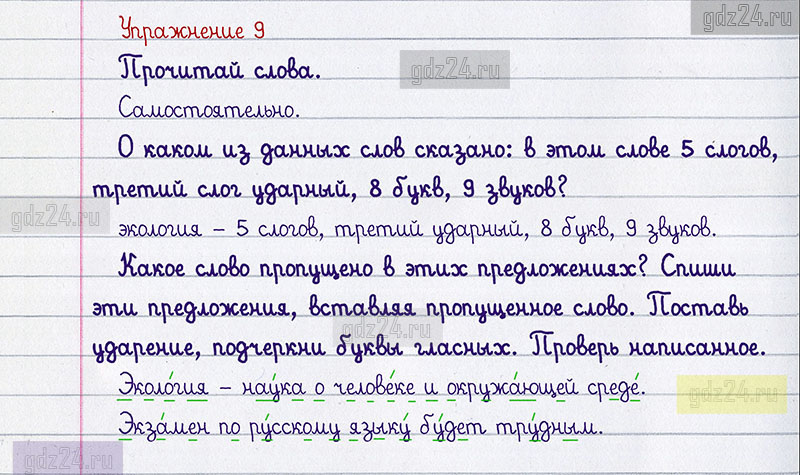 gdz24.ru
Упражнение 9
Прочитай слова.
gdz24.ru
Самостоятельно.
О каком из данных слов сказано: в этом слове 5 слогов,
третий слог ударный, 8 букв, 9 звуков?
gdz24.ru
экология – 5 слогов, третий ударный, 8 букв, 9 звуков.
Какое слово пропущено в этих предложениях? Спиши
эти предложения, вставляя пропущенное слово. Поставь
gdz24.ru
ударение, подчеркни буквы гласных. Проверь написанное.
Эколо́гия – нау́ка о челове́ке и окружа́ющей среде́.
gdz24.ru
Экза́мен по ру́сскому языку́ бу́дет тру́дным.
gdz24.ru